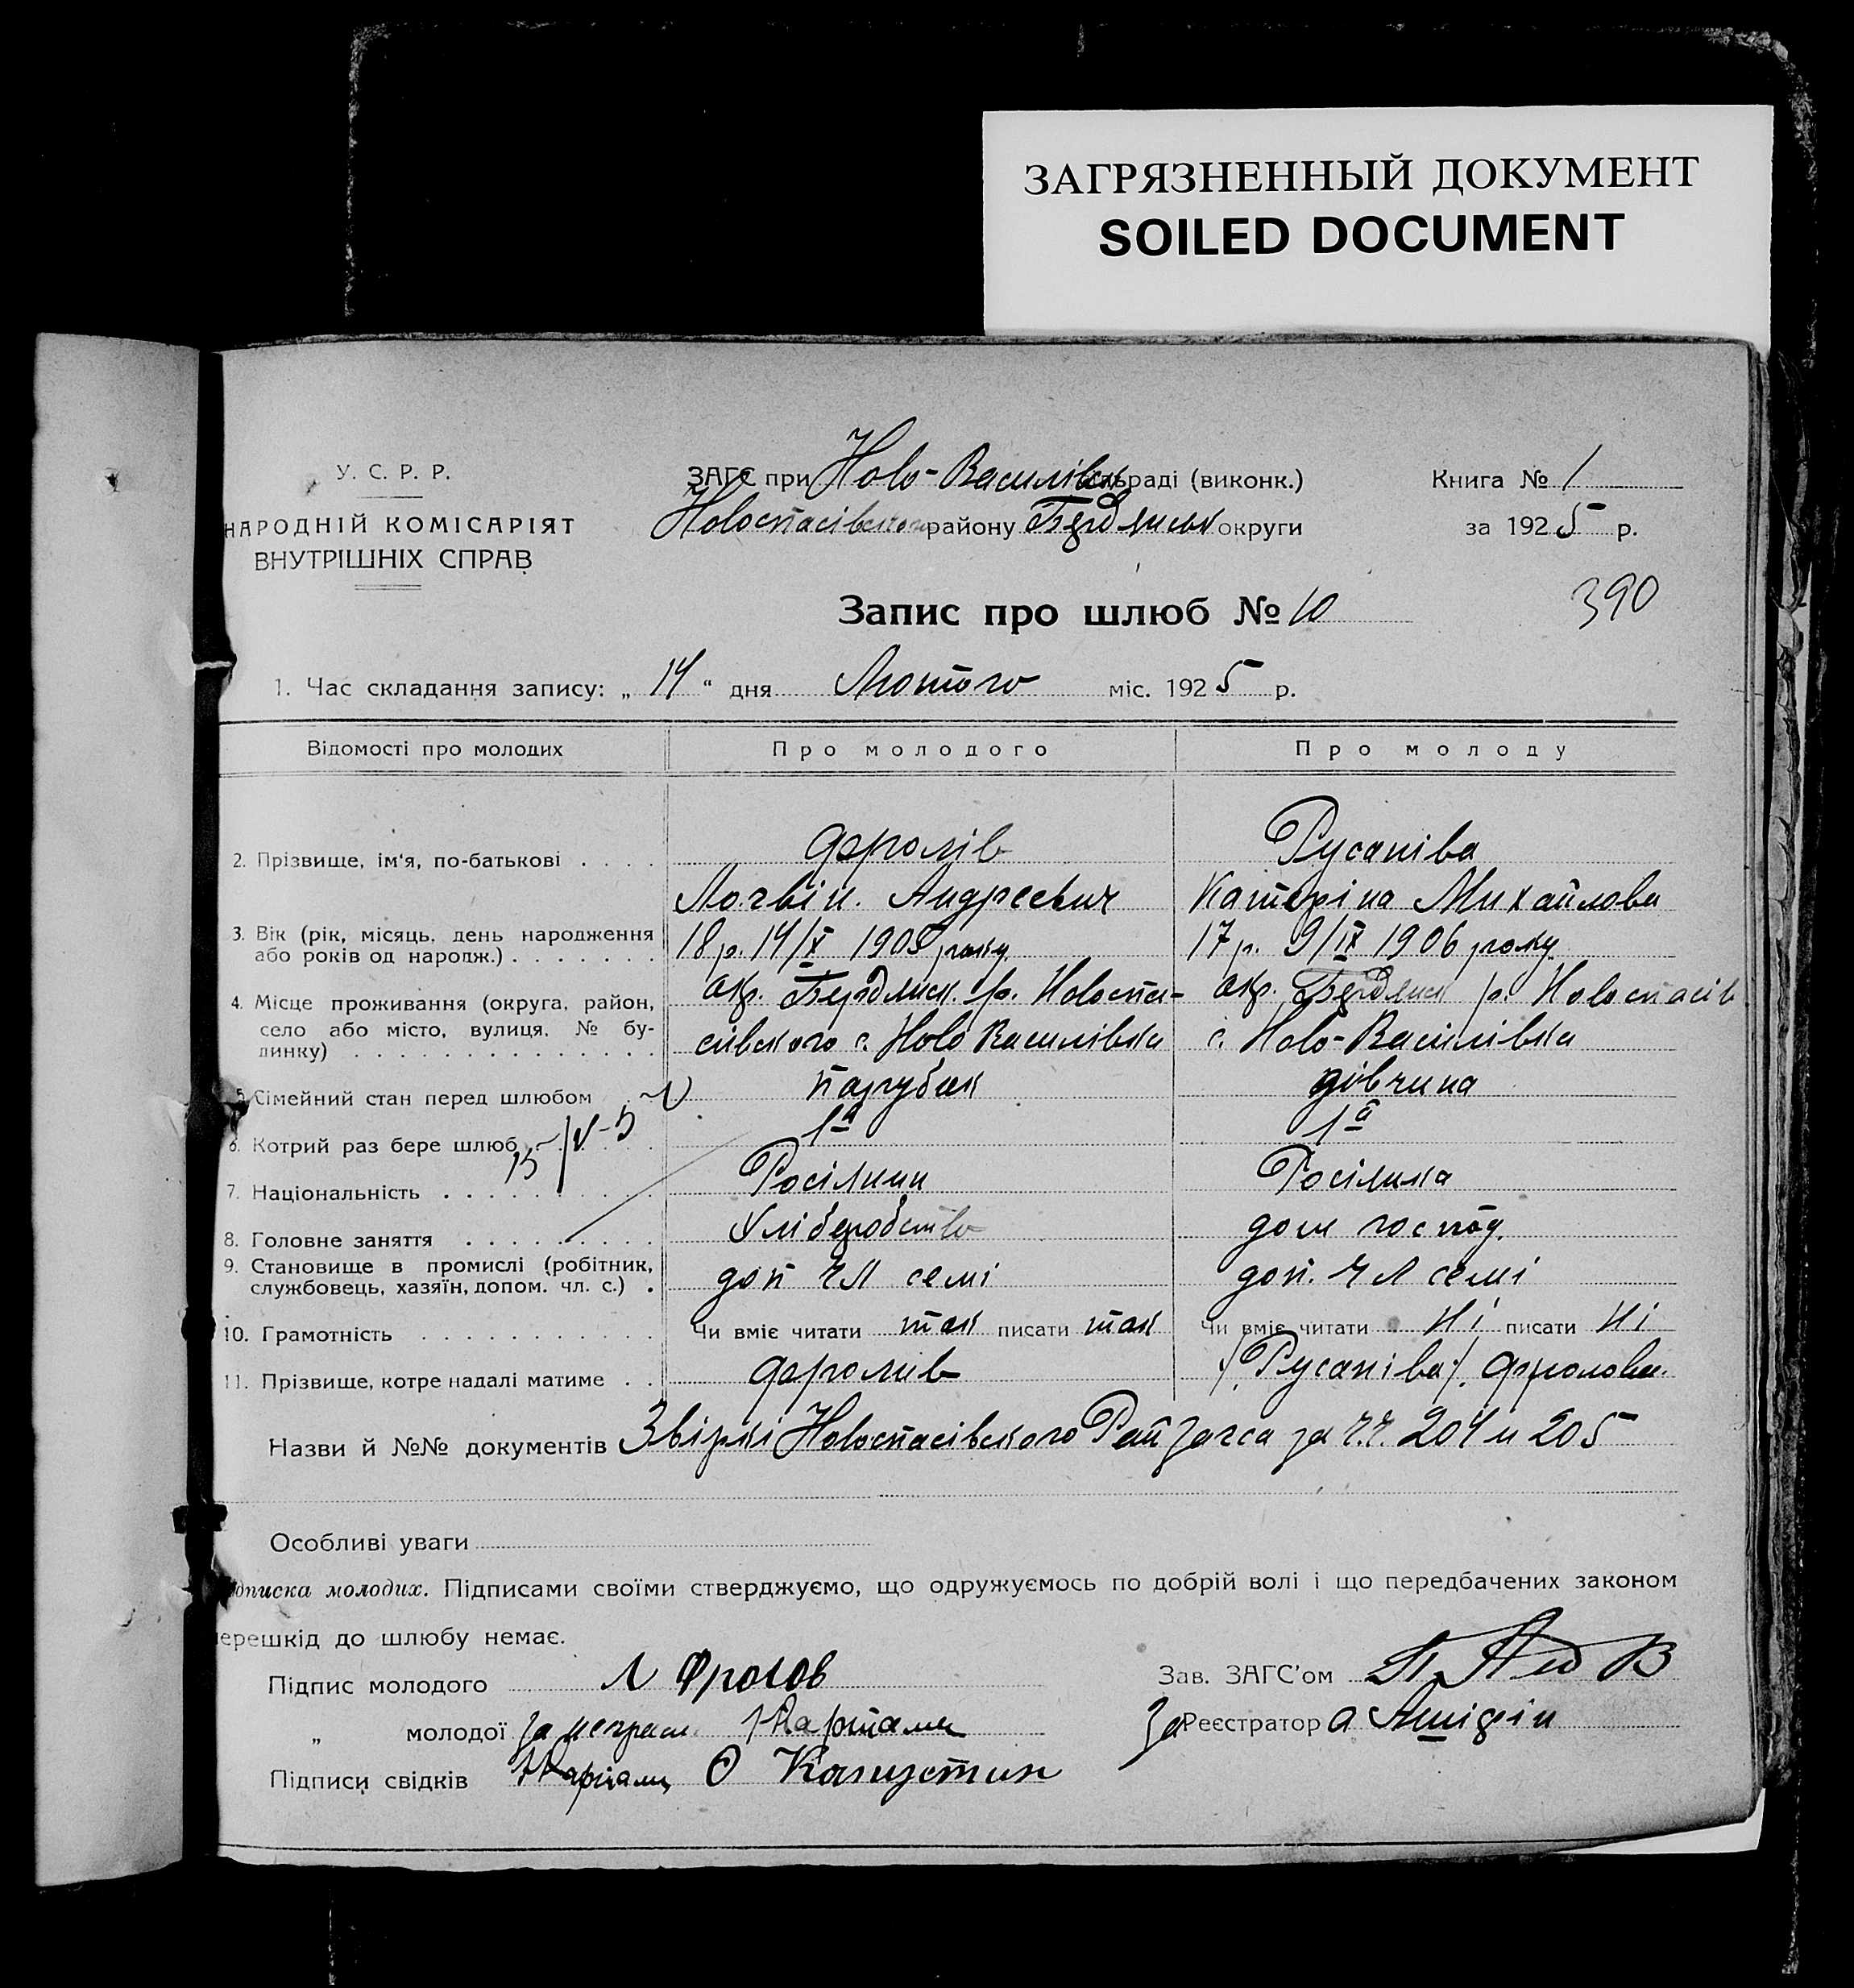 ЗАГРЯЗНЕННЫЙ ДОКУМЕНТ
SOILED DOCUMENT
У. С. Р. Р.
НАРОДНІЙ КОМІСАРІЯТ
ВНУТРІШНІХ СПРАВ
ЗАГС при Ново-Василівск раді (виконк.)
Новоспасівского району Бердянськ округи
Книга № 1
за 1925 р.
Запис про шлюб № 10
390
1. Час складання запису: „ 14 “ дня Лютого міс. 1925 р.
Відомості про молодих Про молодого Про молоду
2. Прізвище, ім'я, по-батькові . . . . Фролів Русанівa
Логвін. Андреевич Катеріна Михайлова
3. Вік (рік, місяць, день народження або років од народж.) . . . . . . . 18 р. 14/X 1905 року. 17 р. 9/IX 1906 року
4. Місце проживання (округа, район, село або місто, вулиця, № будинку) . . . . . . . . . . . . . .
окр. Бердянск. р. Новоспа- окр. Бердянск р. Новоспасів
сівского с. Ново Василівка с. Ново-Василівка
5. Сімейний стан перед шлюбом парубак дівчина
6. Котрий раз бере шлюб 1й 1й
7. Національність . . . . . . . . . . Росіянин Росіянка
8. Головне заняття . . . . . . . . . Хліборобство дом господ.
9. Становище в промислі (робітник, службовець, хазяїн, допом. чл. с.) . доп чл семі доп. чл семі
10. Грамотність . . . . . . . . . . . Чи вміє читати так писати так Чи вміє читати Ні писати Ні
11. Прізвище, котре надалі матиме . . Фролив /Русаніва/. Фролова.
Назви й №№ документів Звіркі Новоспасівского Райзагса за ч.ч. 204 и 205
Особливі уваги
дписка молодих. Підписами своїми стверджуємо, що одружуємось по добрій волі і що передбачених законом
ерешкід до шлюбу немає.
Підпис молодого Л Фролов
Зав. ЗАГС'ом
„ молодої за неграм.
За Реєстратор
Підписи свідків О Капустин